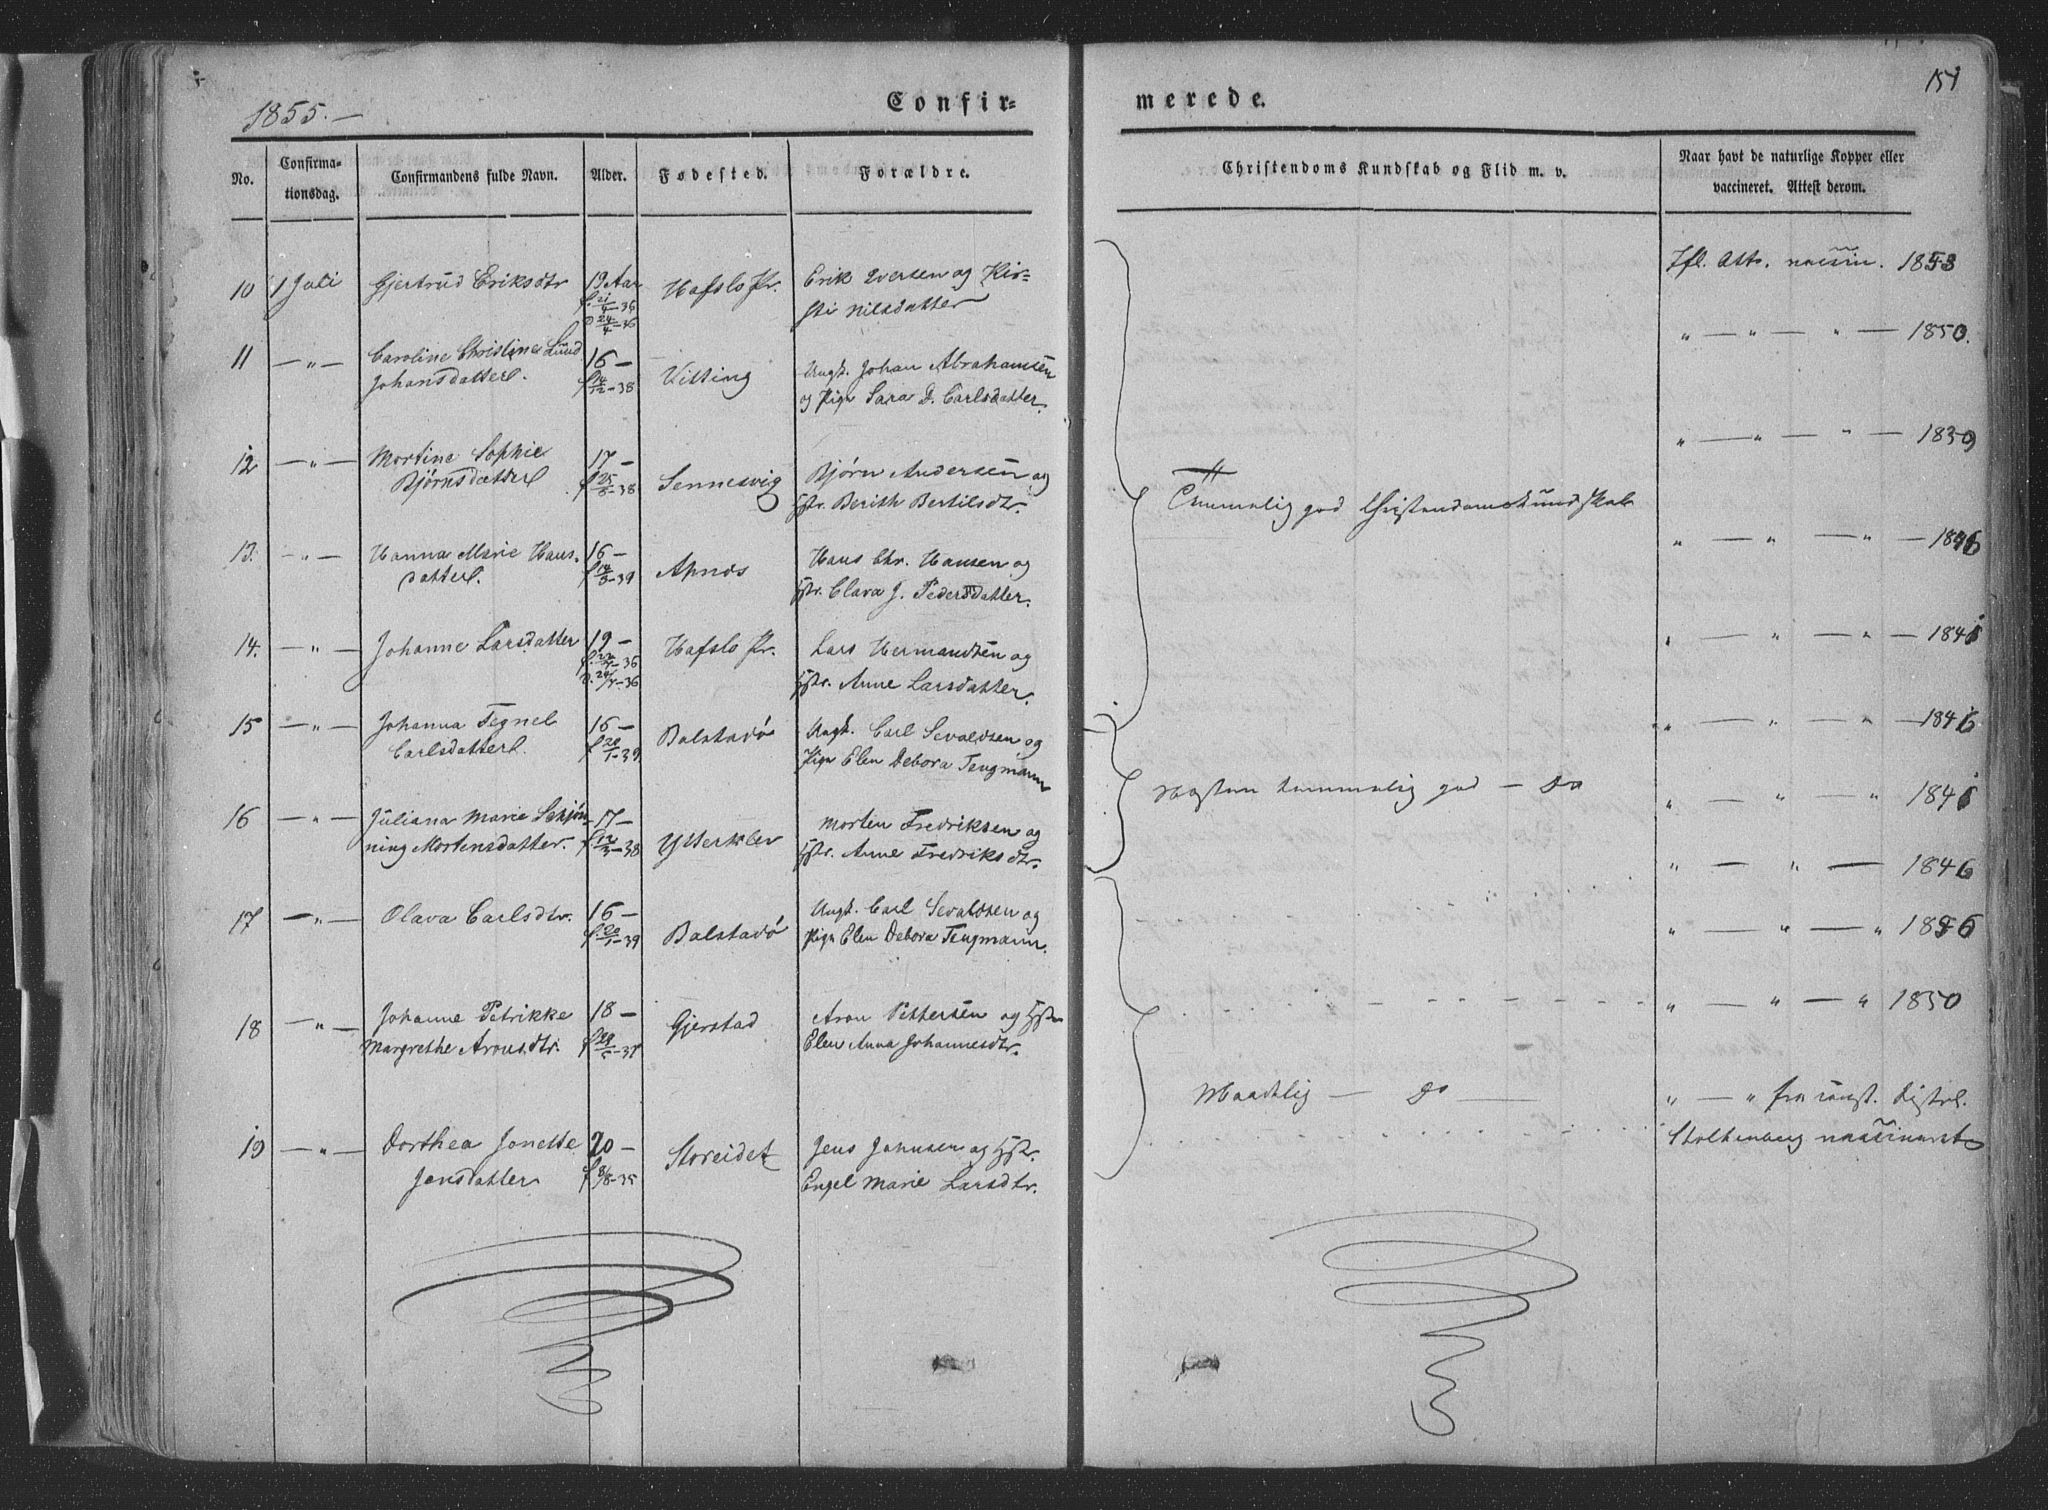 1855.—
Confir=
merede.
151
No.
Confirma-
tionsdag.
Confirmandens fulde Navn.
Alder.
Fødested.
Forældre.
Christendoms Kundskab og Flid m. v.
Naar havt de naturlige Kopper eller
vaccineret. Attest derom.
10 1 Juli Gjertrud Eriksdtr 19 Aar Hafslo Pr. Erik Iversen og Kir-
f. 21/4-36 sti Nilsdatter
d 24/4-36
Ifl. Att. vaccin. 1853
11 —〃— Caroline Christine Lund 16 — Utting Ungk. Johan Abrahamsen
Johansdatter. f 14/12-38 og Pige Sara D. Carlsdatter.
〃 — 〃 — 〃 — 1850.
12 —〃— Martine Sophie 17 — Sennesvig Bjørn Andersen og
Bjørnsdatter f 25/8-38 Hstr. Berith Bertilsdtr.
〃 — 〃 — 〃 — 1839
Temmelig god Christendomskundskab
13. —〃— Hanna Marie Hans- 16 — Apnes Hans Chr. Hansen og
datter. -39 Hstr. Clara J. Pedersdatter.
〃 — 〃 — 〃 — 1846
14. —〃— Johanne Larsdatter 19 — Hafslo Pr. Lars Hermandsen og
-36 Hstr. Anne Larsdatter.
-36
〃 — 〃 — 〃 — 1846
15 —〃— Johanna Tegnel 16 — Balstadø Ungk. Carl Sevaldsen og
Carlsdatter. f 20/1-39 Pige Elen Debora Tengmann
〃 — 〃 — 〃 — 1846
Næsten temmelig god — do
16 —〃— Juliana Marie Schjøn- 17 — Ytterklev Morten Fredriksen og
ning Mortensdatter. f. 12/3-38 Hstr. Anne Fredriksdtr.
〃 — 〃 — 〃 1846
〃 — 〃 — 1846
17 —〃— Olava Carlsdtr. 16 — Balstadø Ungk. Carl Sevaldsen og
f. 20/1-39 Pige Elen Debora Tengmann.
〃 — 〃 — 〃 1846
18 —〃— Johanne Petrikke 18 — Gjerstad Aron Pettersen og Hstr
Margrethe Aronsdtr. -37 Elen Anna Johannesdtr.
〃 — 〃 — 〃 1850
Maadelig — do —
19 —〃— Dorthea Jonette 20 — Storeidet Jens Johnsen og Hstr.
Jensdatter f 8/8-35 Engel Marie Larsdtr.
〃 — 〃 fra const. Distrl.
Stoltenberg vaccineret